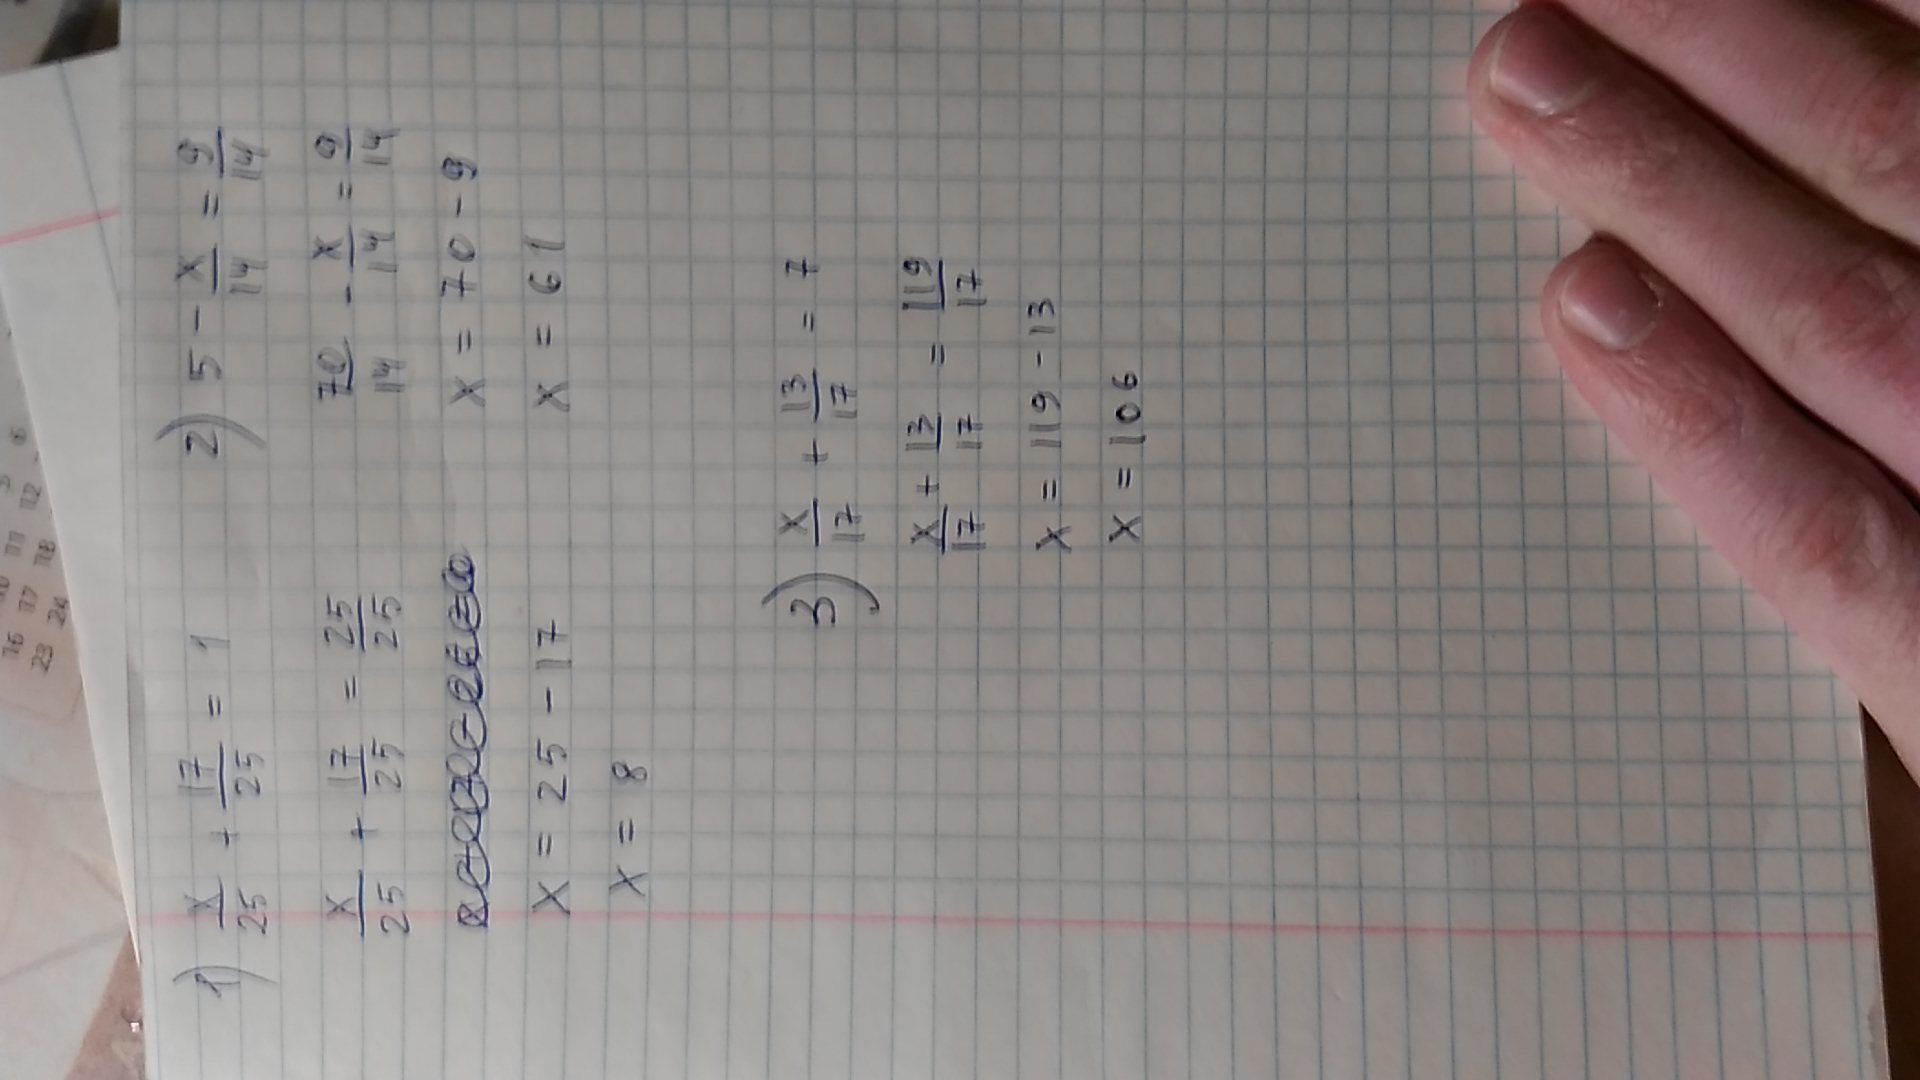 1) x/25 + 17/25 = 1
x/25 + 17/25 = 25/25
x = 25 - 17
x = 8
2) 5 - x/14 = 9/14
70/14 - x/14 = 9/14
x = 70 - 9
x = 61
3) x/17 + 13/17 = 7
x/17 + 13/17 = 119/17
x = 119 - 13
x = 106
6
12
11
18
17
24
16
23